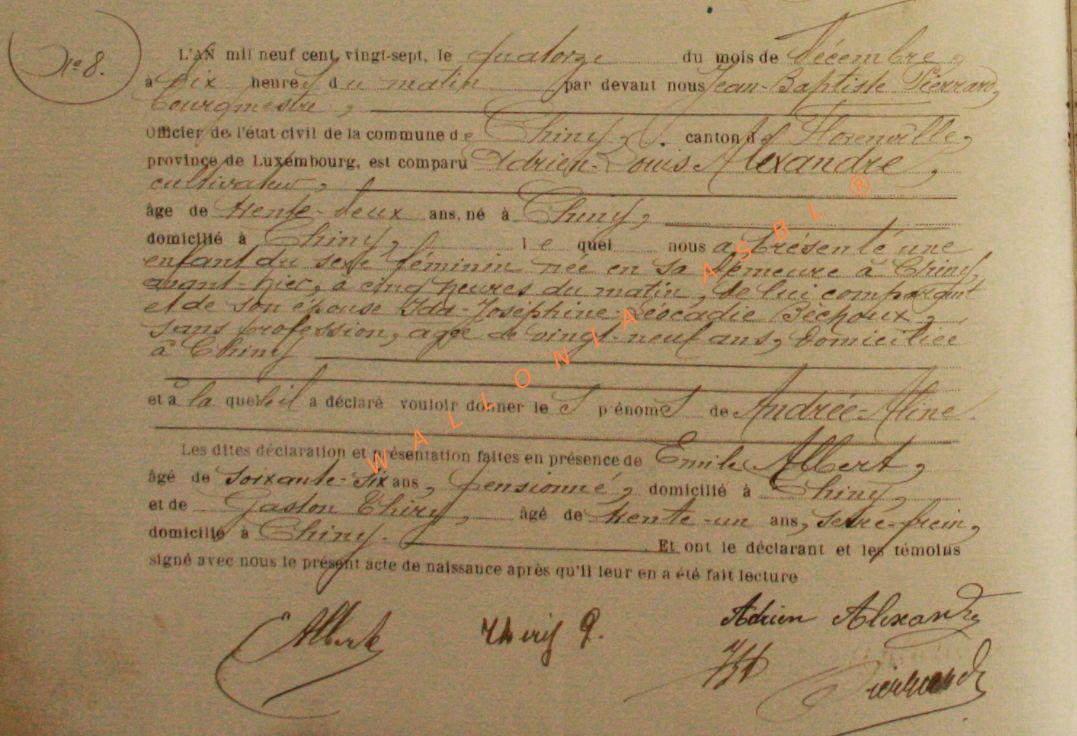 Nº 8.
L'AN mil neuf cent vingt-sept, le quatorze du mois de Décembre,
à dix heures du matin par devant nous Jean-Baptiste Pierrard,
bourgmestre,
Officier de l'état civil de la commune de Chiny, canton de Florenville,
province de Luxembourg, est comparu Adrien-Louis Alexandre,
cultivateur,
âge de trente-deux ans, né à Chiny,
domicilié à Chiny, le quel nous a présenté une
enfant du sexe féminin née en sa demeure à Chiny,
avant-hier, à cinq heures du matin, de lui comparant
et de son épouse Ida-Joséphine-Léocadie Béchoux,
sans profession, agée de vingt-neuf ans, domiciliée
à Chiny
et à la quelle il a déclaré vouloir donner les prénoms de Andrée-Aline.
Les dites déclaration et présentation faites en présence de Emile Albert,
âgé de soixante-six ans, pensionné, domicilié à Chiny,
et de Gaston Thiry, âgé de trente-un ans, serre-frein,
domicilié à Chiny. Et ont le déclarant et les témoins
signé avec nous le présent acte de naissance après qu'il leur en a été fait lecture
Albert Thiry G. Adrien Alexandre
WALLONIA ASBL ®